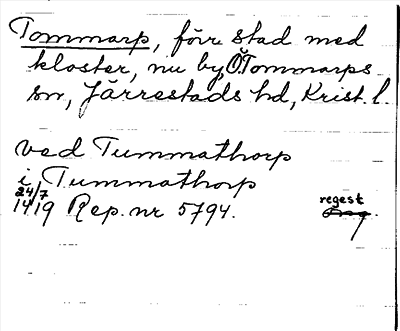 Tommarp, förr stad med
kloster, nu by, Ö. Tommarps
sn, Järrestads hd, Krist. l.
ved Tummathorp
i Tummathorp
24/7
1419 Rep. nr 5794.
regest